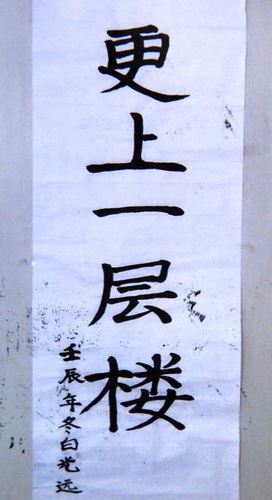 更上一层楼
壬辰年冬白光远